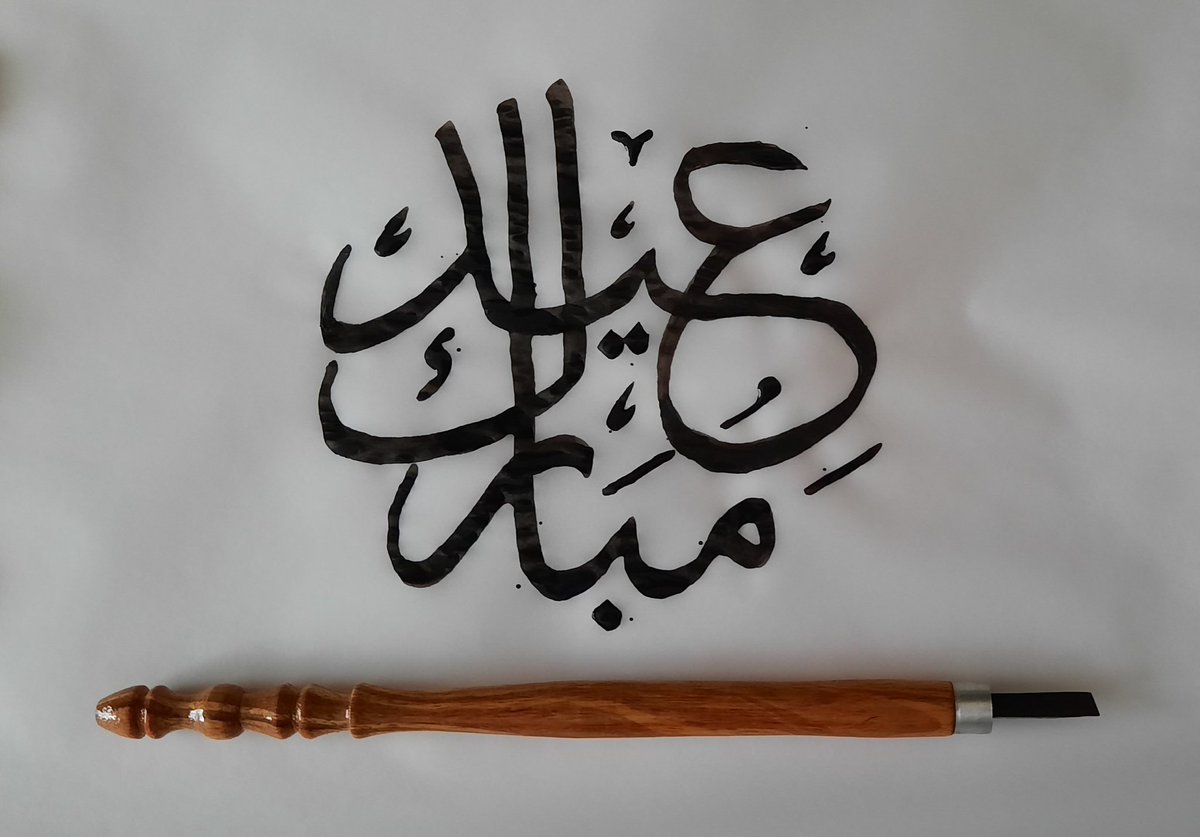 عيدك
مبارك